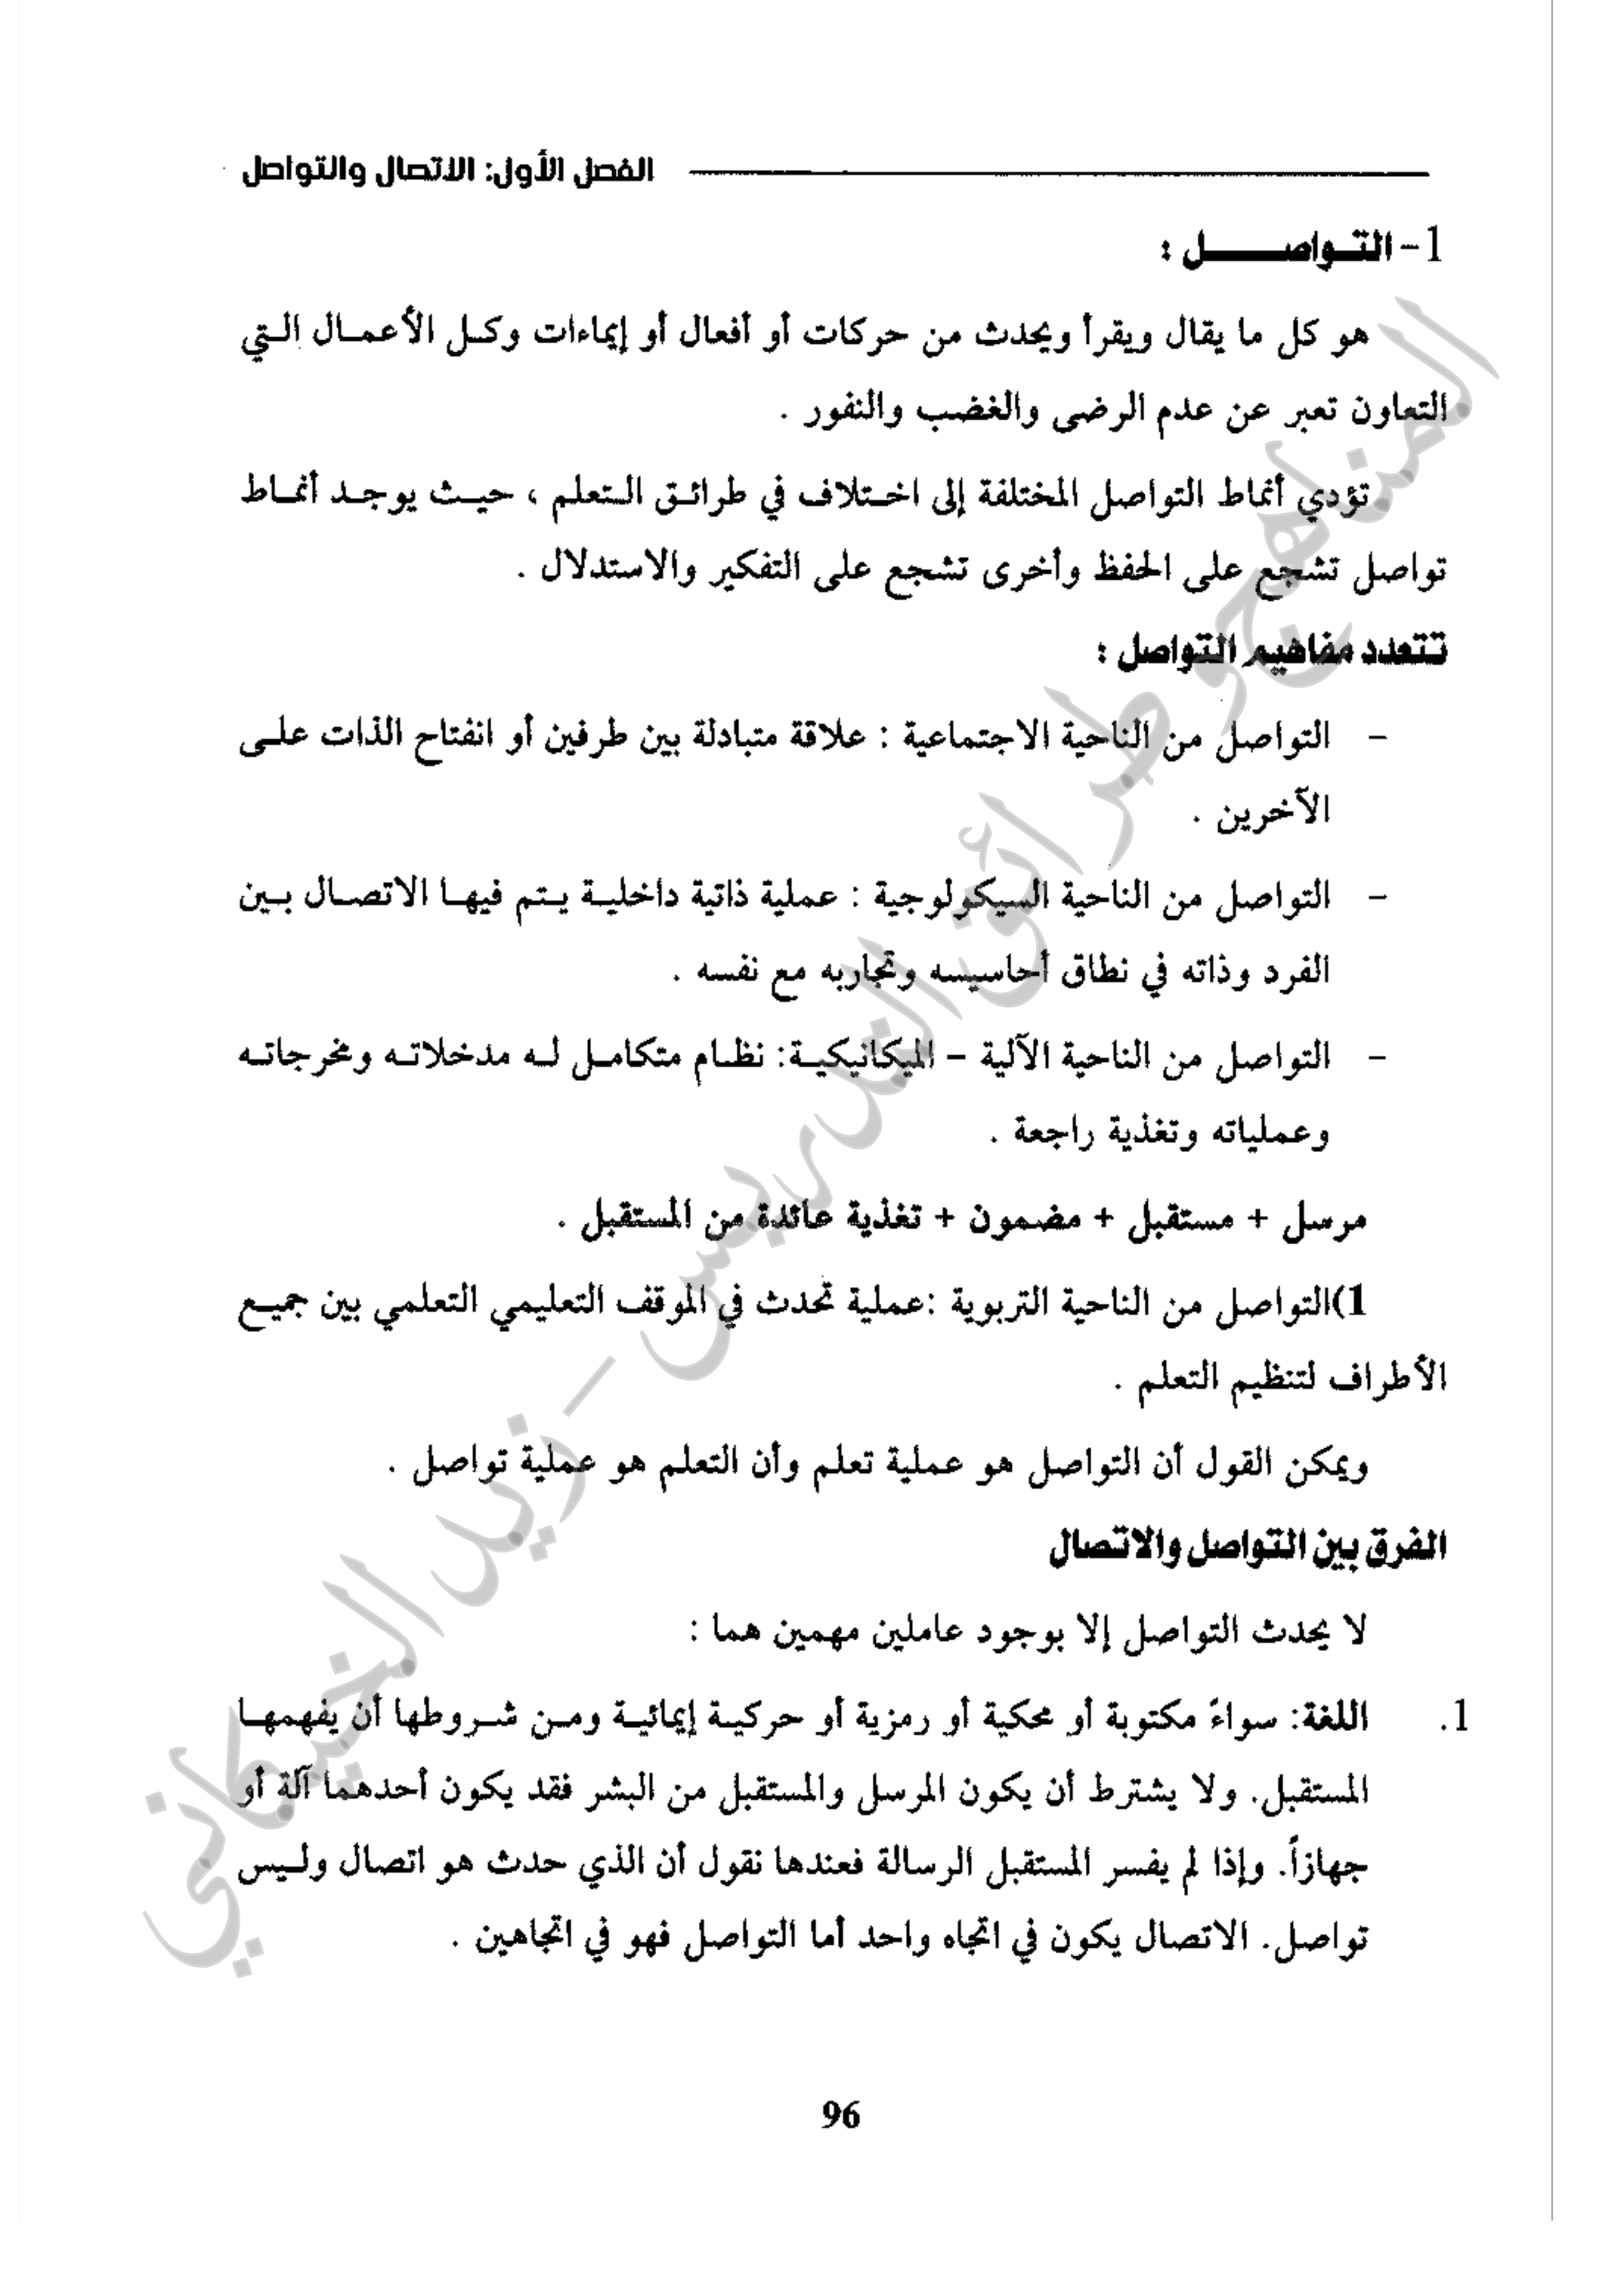 الفصل الأول: الاتصال والتواصل
1- التواصل :
هو كل ما يقال ويقرأ ويحدث من حركات أو أفعال أو إيماءات وكل الأعمال التي
التعاون تعبر عن عدم الرضى والغضب والنفور .
تؤدي أنماط التواصل المختلفة إلى اختلاف في طرائق التعلم ، حيث يوجد أنماط
تواصل تشجع على الحفظ وأخرى تشجع على التفكير والاستدلال .
تتعدد مفاهيم التواصل :
- التواصل من الناحية الاجتماعية : علاقة متبادلة بين طرفين أو انفتاح الذات على
الآخرين .
- التواصل من الناحية السيكولوجية : عملية ذاتية داخلية يتم فيها الاتصال بين
الفرد وذاته في نطاق أحاسيسه وتجاربه مع نفسه .
- التواصل من الناحية الآلية – الميكانيكية: نظام متكامل له مدخلاته ومخرجاته
وعملياته وتغذية راجعة .
مرسل + مستقبل + مضمون + تغذية عائدة من المستقبل .
1)التواصل من الناحية التربوية :عملية تحدث في الموقف التعليمي التعلمي بين جميع
الأطراف لتنظيم التعلم .
ويمكن القول أن التواصل هو عملية تعلم وأن التعلم هو عملية تواصل .
الفرق بين التواصل والاتصال
لا يحدث التواصل إلا بوجود عاملين مهمين هما :
1. اللغة: سواءً مكتوبة أو محكية أو رمزية أو حركية إيمائية ومن شروطها أن يفهمها
المستقبل. ولا يشترط أن يكون المرسل والمستقبل من البشر فقد يكون أحدهما آلة أو
جهازاً. وإذا لم يفسر المستقبل الرسالة فعندها نقول أن الذي حدث هو اتصال وليس
تواصل. الاتصال يكون في اتجاه واحد أما التواصل فهو في اتجاهين .
96
المناهج وطرائق التدريس – زيد الخيكاني